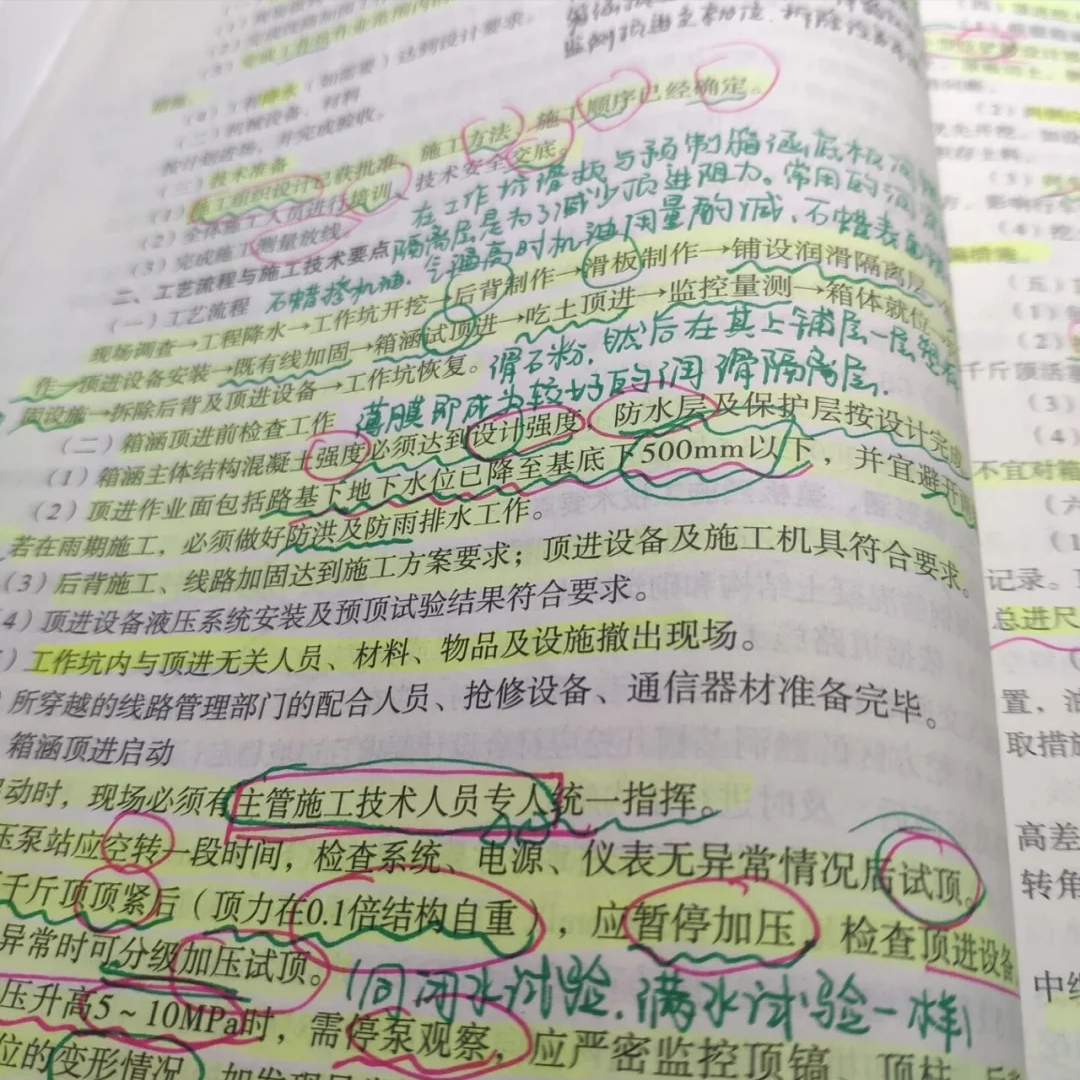 达到设计要求。
(二)机械设备、材料
按计划进场，并完成验收。
(三)技术准备
(1)施工组织设计已获批准，施工方法、施工顺序已经确定。
(2)全体施工人员进行培训、技术安全交底。
(3)完成施工测量放线。
在工作坑滑板与预制箱涵底板间
隔离层是为了减少顶进阻力。常用的润滑
石蜡掺机油，气温高时机油用量酌减，石蜡表面
二、工艺流程与施工技术要点
(一)工艺流程
现场调查→工程降水→工作坑开挖→后背制作→滑板制作→铺设润滑隔离层→
作→顶进设备安装→既有线加固→箱涵试顶进→吃土顶进→监控量测→箱体就位→
固设施→拆除后背及顶进设备→工作坑恢复。
滑石粉，然后在其上铺层一层塑料
薄膜即成为较好的润滑隔离层.
(二)箱涵顶进前检查工作
(1)箱涵主体结构混凝土强度必须达到设计强度，防水层及保护层按设计完成。
(2)顶进作业面包括路基下地下水位已降至基底下500mm以下，并宜避开雨
若在雨期施工，必须做好防洪及防雨排水工作。
(3)后背施工、线路加固达到施工方案要求；顶进设备及施工机具符合要求。
4)顶进设备液压系统安装及预顶试验结果符合要求。
)工作坑内与顶进无关人员、材料、物品及设施撤出现场。
)所穿越的线路管理部门的配合人员、抢修设备、通信器材准备完毕。
箱涵顶进启动
动时，现场必须有主管施工技术人员专人统一指挥。
压泵站应空转一段时间，检查系统、电源、仪表无异常情况后试顶。
千斤顶顶紧后（顶力在0.1倍结构自重），应暂停加压，检查顶进设备
异常时可分级加压试顶。
(同闭水试验.满水试验一样)
压升高5～10MPa时，需停泵观察，应严密监控顶镐、顶柱
位的变形情况，如发现异
千斤顶活塞
(3)
(4)
不宜对箱
(六
(1
记录。
总进尺
置，油
取措施
高差
转角
中线